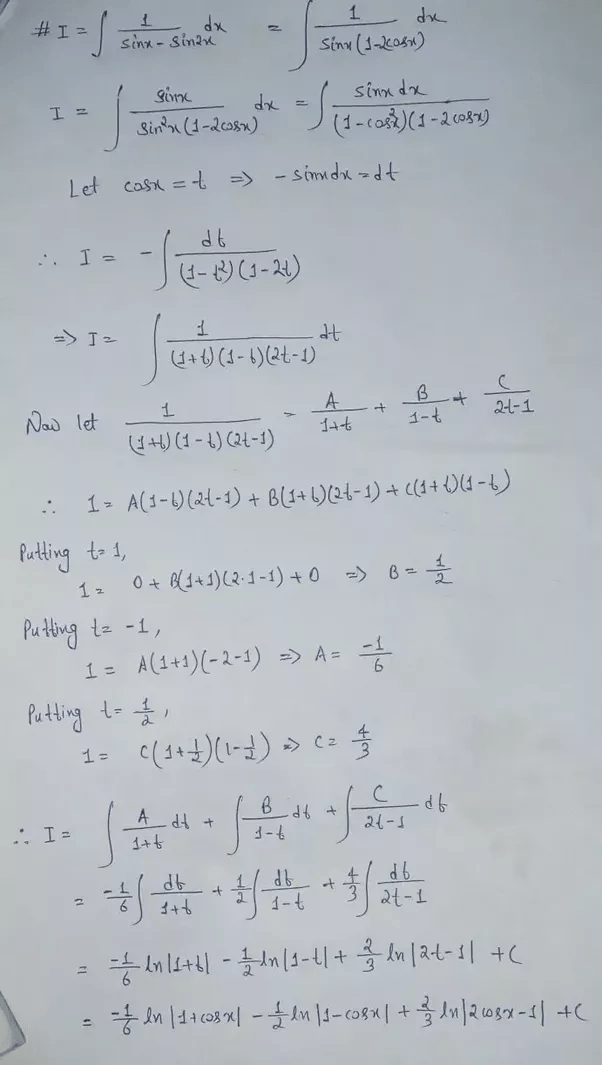 # I = ∫ 1/(sinx - sin2x) dx = ∫ 1/(sinx(1-2cosx)) dx
I = ∫ sinx/(sin²x(1-2cosx)) dx = ∫ sinx dx/((1-cos²x)(1-2cosx))
Let cosx = t => -sinxdx = dt
∴ I = -∫ dt/((1-t²)(1-2t))
=> I = ∫ 1/((1+t)(1-t)(2t-1)) dt
Now let 1/((1+t)(1-t)(2t-1)) = A/(1+t) + B/(1-t) + C/(2t-1)
∴ 1 = A(1-t)(2t-1) + B(1+t)(2t-1) + C(1+t)(1-t)
Putting t=1,
1 = 0 + B(1+1)(2·1-1) + 0 => B = 1/2
Putting t= -1,
1 = A(1+1)(-2-1) => A = -1/6
Putting t= 1/2,
1 = C(1+1/2)(1-1/2) => C = 4/3
∴ I = ∫ A/(1+t) dt + ∫ B/(1-t) dt + ∫ C/(2t-1) dt
= -1/6 ∫ dt/(1+t) + 1/2 ∫ dt/(1-t) + 4/3 ∫ dt/(2t-1)
= -1/6 ln|1+t| - 1/2 ln|1-t| + 2/3 ln|2t-1| + C
= -1/6 ln|1+cosx| - 1/2 ln|1-cosx| + 2/3 ln|2cosx-1| + C